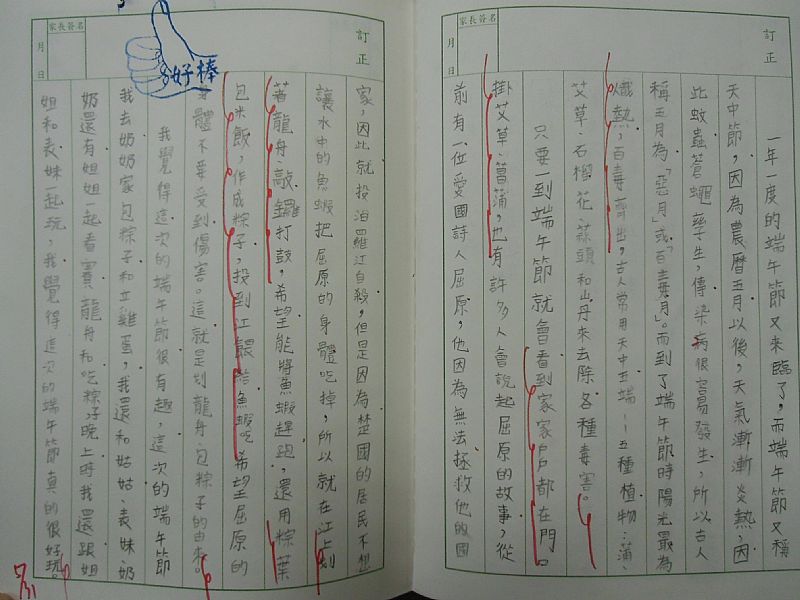 訂正
家長簽名
月 日
一年一度的端午節又來臨了,而端午節又稱
天中節,因為農曆五月以後,天氣漸漸炎熱,因
此蚊蟲蒼蠅孳生,傳染病很容易發生,所以古人
稱五月為「惡月」或「百毒月」。而到了端午節時陽光最為
熾熱,百毒齊出,古人常用天中五端—五種植物:蒲、
艾草、石榴花、蒜頭和山丹來去除各種毒害。
只要一到端午節就會看到家家戶戶都在門口
掛艾草、菖蒲,也有許多人會說起屈原的故事,從
前有一位愛國詩人屈原,他因為無法拯救他的國
訂正
家長簽名
月 日
好棒
家,因此就投汨羅江自殺,但是因為楚國的居民不想
讓水中的魚蝦把屈原的身體吃掉,所以就在江上划
著龍舟、敲鑼打鼓,希望能將魚蝦趕跑,還用粽葉
包米飯,作成粽子,投到江餵給魚蝦吃希望屈原的
身體不要受到傷害。這就是划龍舟、包粽子的由來。
我覺得這次的端午節很有趣,這次的端午節
我去奶奶家包粽子和立雞蛋,我還和姑姑、表妹、奶
奶還有姐姐一起看賽龍舟和吃粽子,晚上時我還跟姐
姐和表妹一起玩,我覺得這次的端午節真的很好玩。
5/31